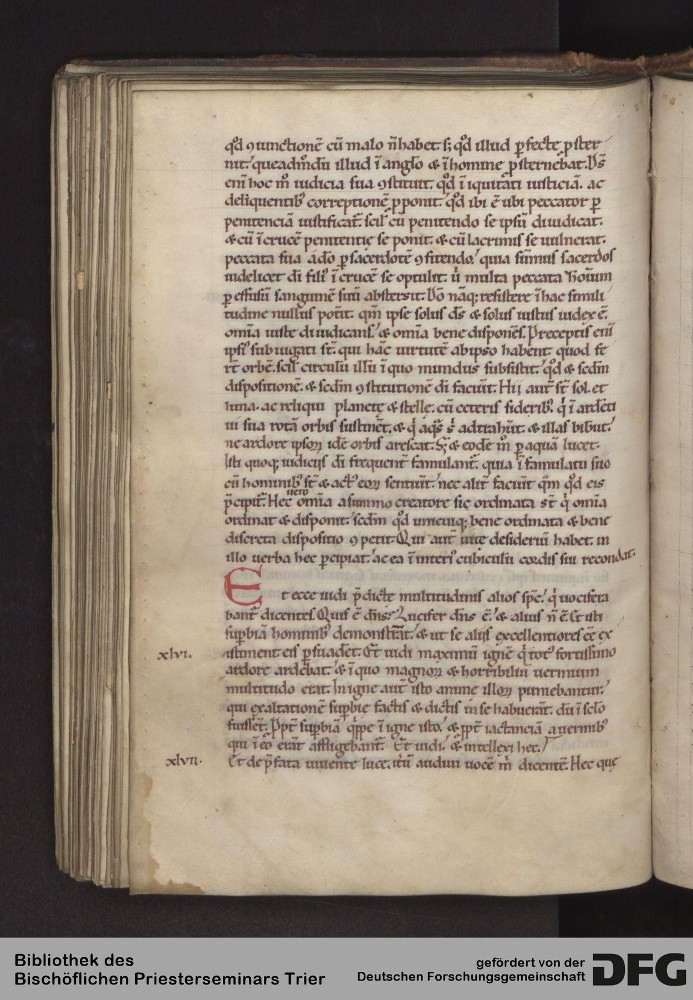 qd ꝯiunctionē cū malo n̄ habet. s; qd illud ꝑfecte ꝓster
nit. queadmdū illud ī anglo & ī homine ꝓsternebat. Ds̄
eni hoc m̊ iudicia sua ꝯstituit. qd ī iquitati iusticiā. ac
deliquentib; correptionē ꝓponit. qd ibi ē ubi peccator ꝑ
penitenciā iustificat̄. scil' cū penitendo se ipsū diiudicat.
& cū ī crucē penitentię se ponit. & cū lacrimis se uulnerat.
peccata sua a dō ꝑ sacerdotē ꝯfitendo. quia sūmus sacerdos
uidelicet di fili' ī crucē se optulit. u̇ multa peccata hoīum
ꝑ effusū sanguinē suū abstersit. Dō naq; resistere ī hac simili
tudine nullus potit. qm̄ ipse solus ds̄ & solus iustus iudex ē.
omīa iuste diiudicans. & omīa bene disponēs. Preceptis eni
ipsi' subiugati st̄. qui hāc uirtutē ab ipso habent. quod fe
rt̄ orbē. scil' circulū illū ī quo mundus subsistit. qd & sedm
dispositionē. & sedm ꝯstitutionē di faciūt. Hii aut̄ st̄ sol. et
luna. ac reliqui planetę & stellę. cū ceteris siderib;. q̇ ī ardēti
ui sua rotā orbis sustinēt. & q̇ aq̄s s̄ adtrahūt. & illas bibūt.
ne ardore ipsoꝝ idē orbis arescat. S; & eodē m̊ ꝑ aquā lucet.
Isti quoq; iudiciis di frequent̄ famulant̄. quia ī famulatu suo
cū hominib; st̄ & act' eoꝝ sentiūt. nec alit̄ faciūt qm̄ qd eis
p̄cipit̄. Hec uero omīa a summo creatore sic ordinata st̄ q̇ omīa
ordinat & disponit. sedm qd unicuiq; bene ordinata & bene
discreta dispositio ꝯpetit. Qui aut̄ uitę desideriū habet. in
illo uerba hec ꝑcipiat. ac ea ī interi' cubiculū cordis sui recondat.
Et ecce uidi p̄dictę multitudinis alios spc̄. q̇ uocifera
bant̄ dicentes. Quis ē dn̄s? Lucifer dn̄s ē. & alius n̄ ē. Et isti
supbiā hominib; demonstrāt. & ut se aliis excellentiores eē ex
xlvi. istiment eis ꝑsuadēt. Et uidi maximū ignē q̇ tot' fortissimo
ardore ardebat. & ī quo magnoꝝ & horribiliū uermium
multitudo erat. In igne aut̄ isto anime illoꝝ puniebantur.
qui exaltationē supbię factis & dictis in se habuerāt. dū ī sclo
fuissēt. Ppt̄ supbiā q̇ppe ī igne isto. & ꝓpt̄ iactanciā a uermib;
qui ī eo erāt affligebant̄. Et uidi. & intellexi hec.
xlvii. Et de p̄fata uiuente luce. itū audiui uocē m̄ dicentē. Hec quę
Bibliothek des
Bischöflichen Priesterseminars Trier
gefördert von der
Deutschen Forschungsgemeinschaft
DFG